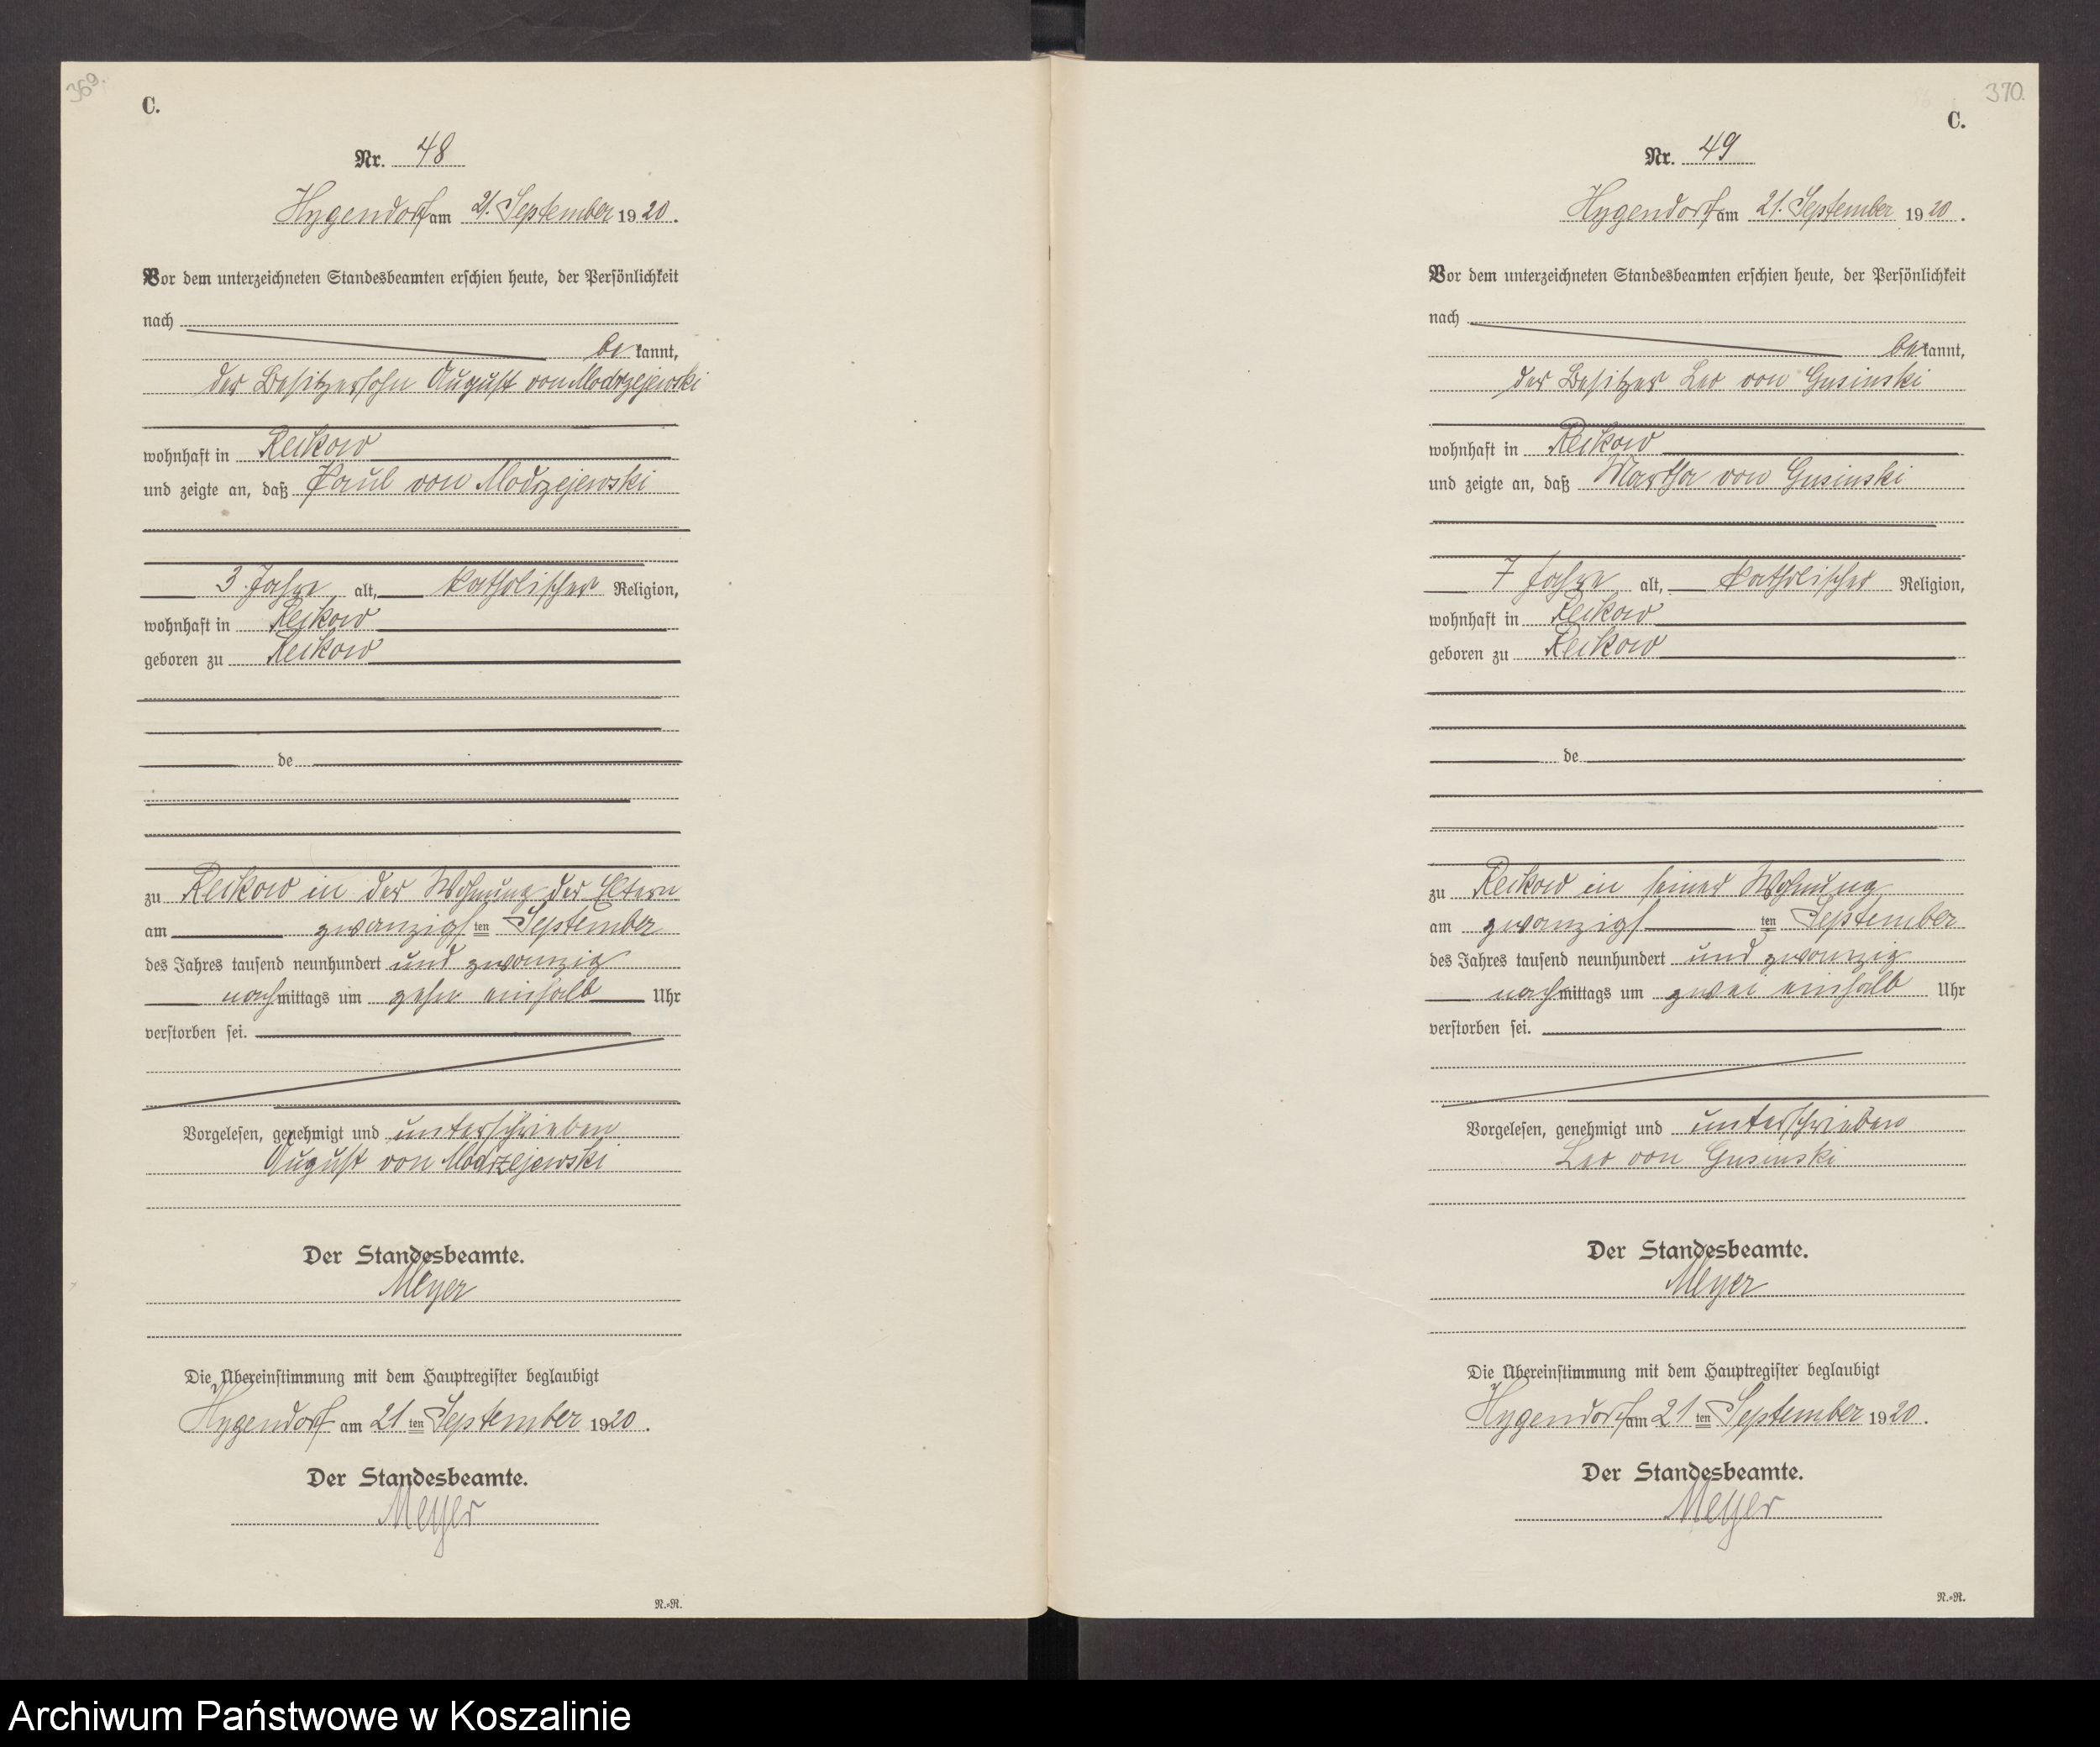 369.
C.
Nr. 48
Hygendorf am 21. September 1920.
Vor dem unterzeichneten Standesbeamten erschien heute, der Persönlichkeit
nach
bekannt,
der Besitzersohn August von Modrzejewski
wohnhaft in Reikow
und zeigte an, daß Paul von Modrzejewski
3 Jahre alt, katholischer Religion,
wohnhaft in Reikow
geboren zu Reikow
de
zu Reikow in der Wohnung der Eltern
am zwanzigsten September
des Jahres tausend neunhundert und zwanzig
nachmittags um zehn einhalb Uhr
verstorben sei.
Vorgelesen, genehmigt und unterschrieben
August von Modrzejewski
Der Standesbeamte.
Meyer
Die Übereinstimmung mit dem Hauptregister beglaubigt
Hygendorf am 21ten September 1920.
Der Standesbeamte.
Meyer
N.-R.
370.
C.
Nr. 49
Hygendorf am 21. September 1920.
Vor dem unterzeichneten Standesbeamten erschien heute, der Persönlichkeit
nach
bekannt,
der Besitzer Leo von Gusinski
wohnhaft in Reikow
und zeigte an, daß Martha von Gusinski
7 Jahre alt, katholischer Religion,
wohnhaft in Reikow
geboren zu Reikow
de
zu Reikow in seiner Wohnung
am zwanzigsten September
des Jahres tausend neunhundert und zwanzig
nachmittags um zwei einhalb Uhr
verstorben sei.
Vorgelesen, genehmigt und unterschrieben
Leo von Gusinski
Der Standesbeamte.
Meyer
Die Übereinstimmung mit dem Hauptregister beglaubigt
Hygendorf am 21ten September 1920.
Der Standesbeamte.
Meyer
N.-R.
Archiwum Państwowe w Koszalinie